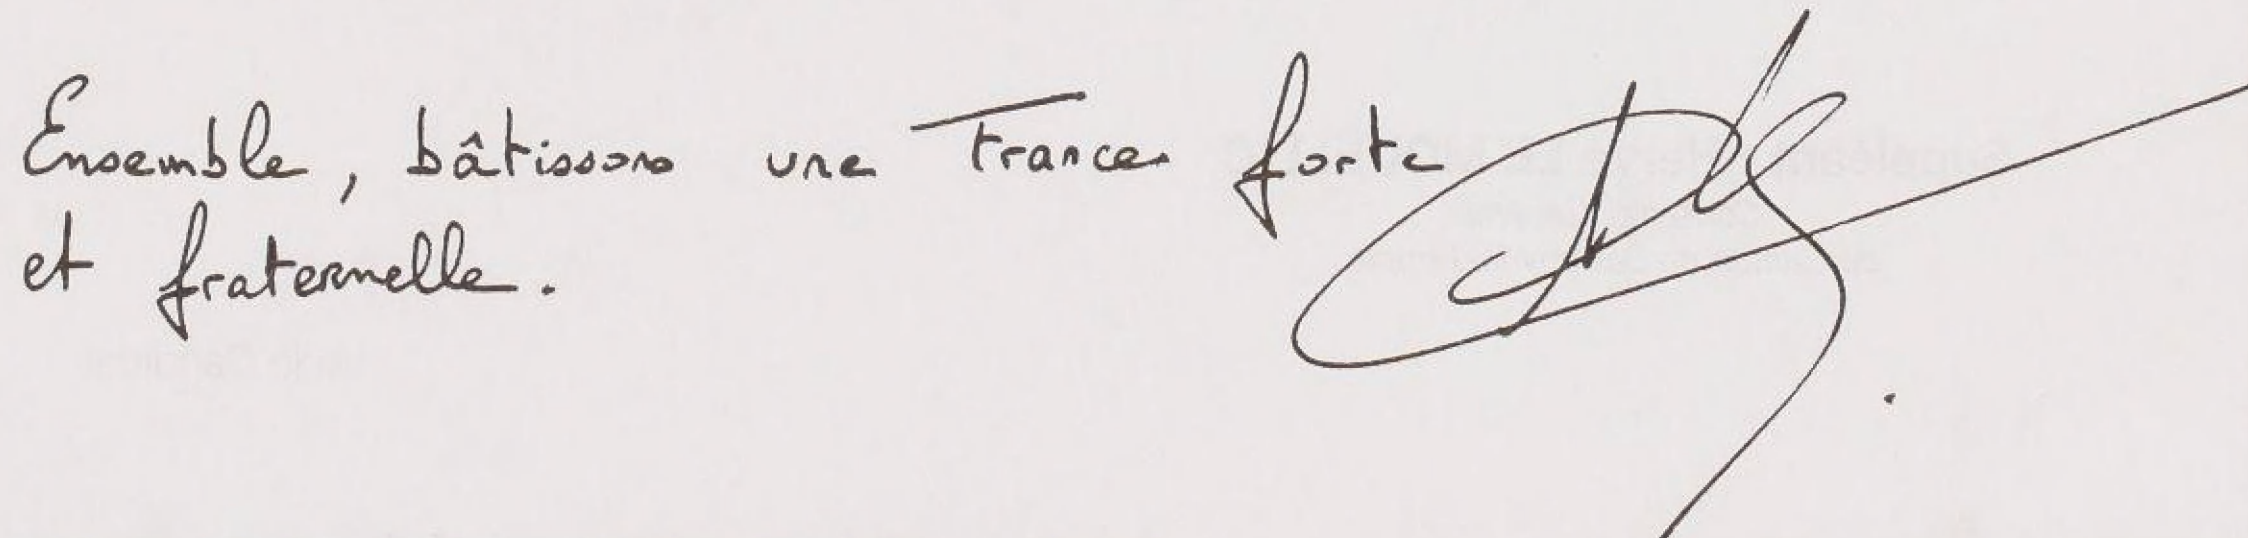 Ensemble, bâtissons une France forte
et fraternelle.